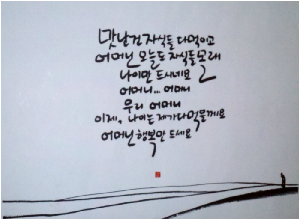 맛난건 자식들 다먹이고
어머닌 오늘도 자식들 모래
나이만 드시네요
어머니... 어머니
우리 어머니
이제, 나이는 제가 다먹을께요
어머닌 행복만 드세요